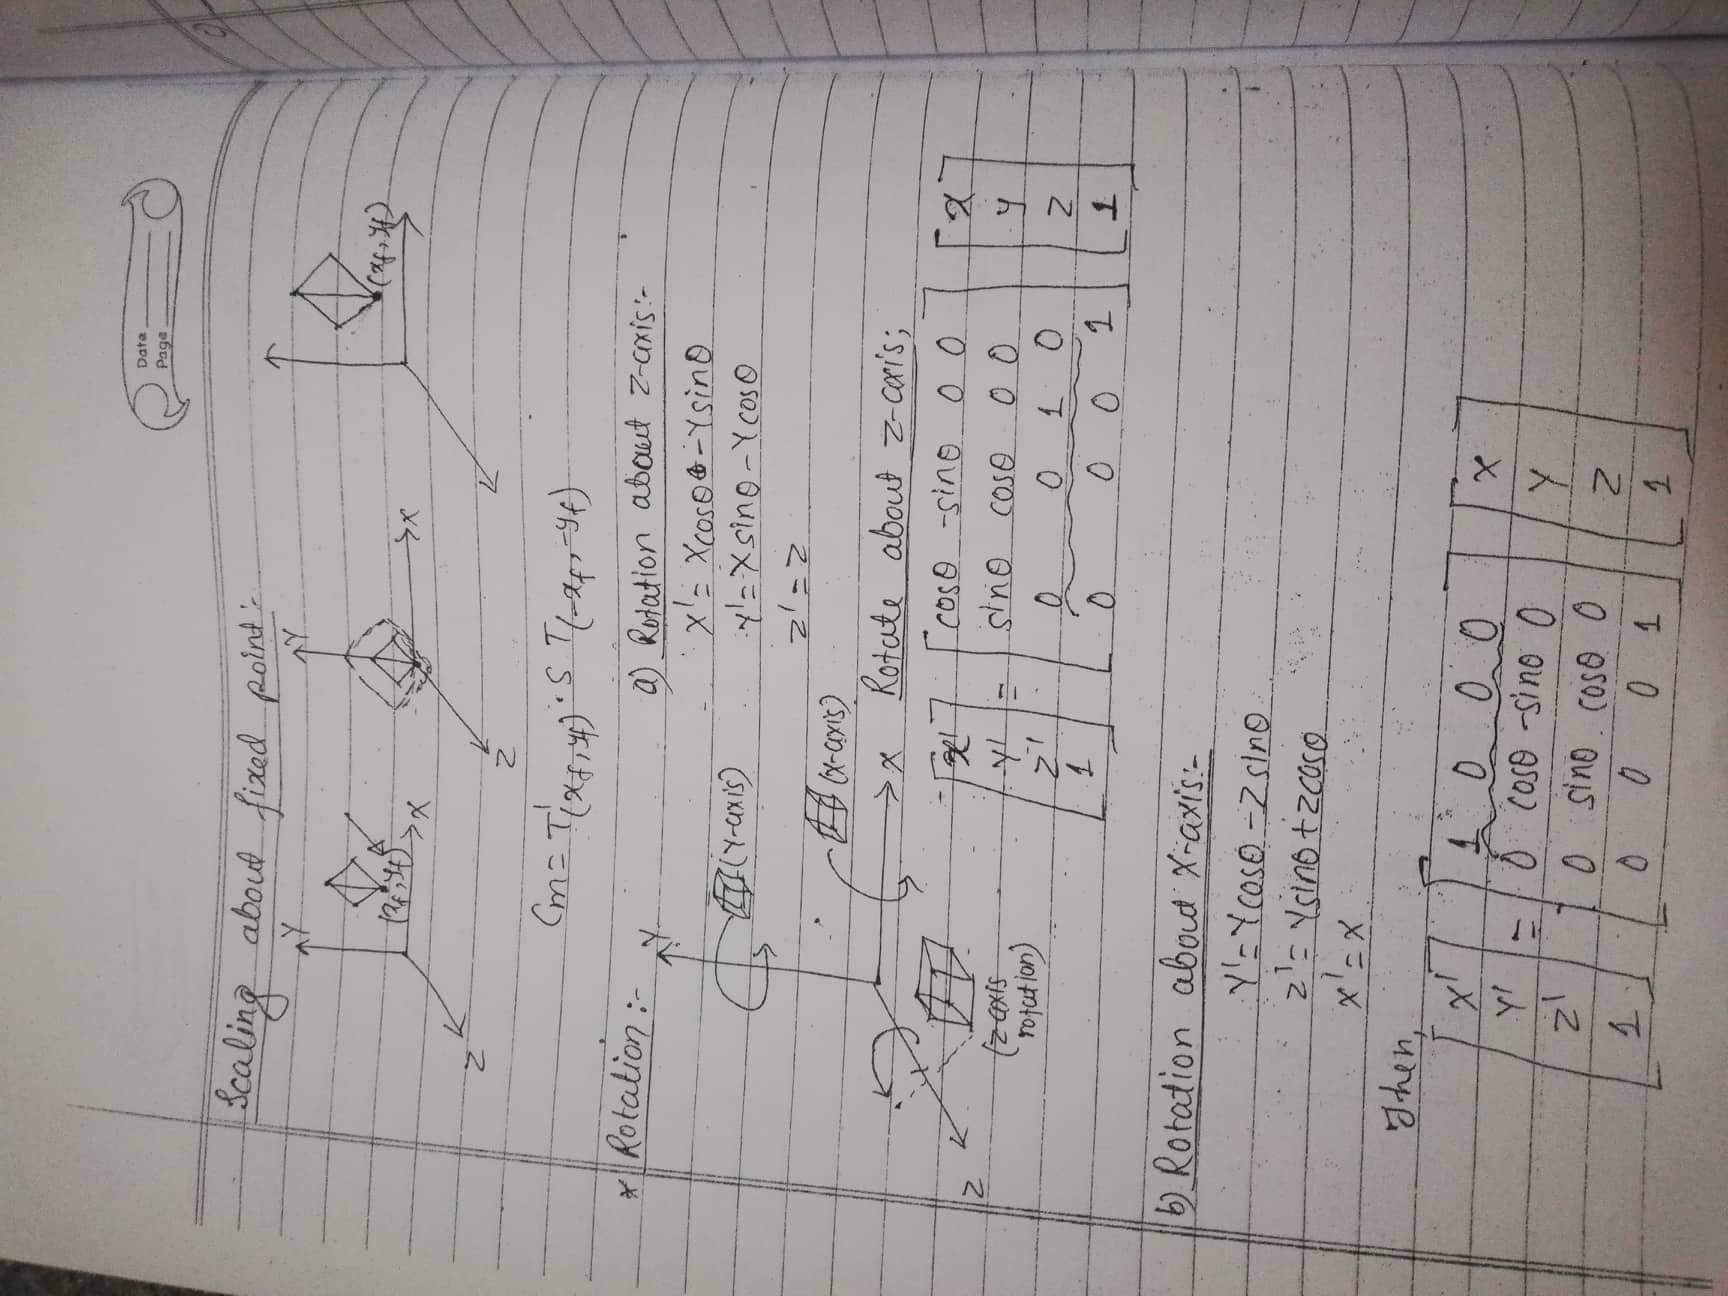 Date
Page
Scaling about fixed point:-
Y
(xf, yf)
X
Z
Y
X
Z
(xf, yf)
Cm = T'(xf, yf) · S T(-xf, -yf)
* Rotation :-
Y
(Y-axis)
(x-axis)
X
Z
(z-axis
rotation)
a) Rotation about Z-axis:-
X' = Xcosθ - Ysinθ
Y' = Xsinθ - Ycosθ
Z' = Z
Rotate about z-axis;
[x'] = [cosθ -sinθ 0 0] [x]
[Y'] [sinθ cosθ 0 0] [y]
[Z'] [0 0 1 0] [z]
[1] [0 0 0 1] [1]
b) Rotation about X-axis:-
Y' = Ycosθ - Zsinθ
Z' = Ysinθ + Zcosθ
X' = X
Then,
[X'] = [1 0 0 0] [X]
[Y'] [0 cosθ -sinθ 0] [Y]
[Z'] [0 sinθ cosθ 0] [Z]
[1] [0 0 0 1] [1]